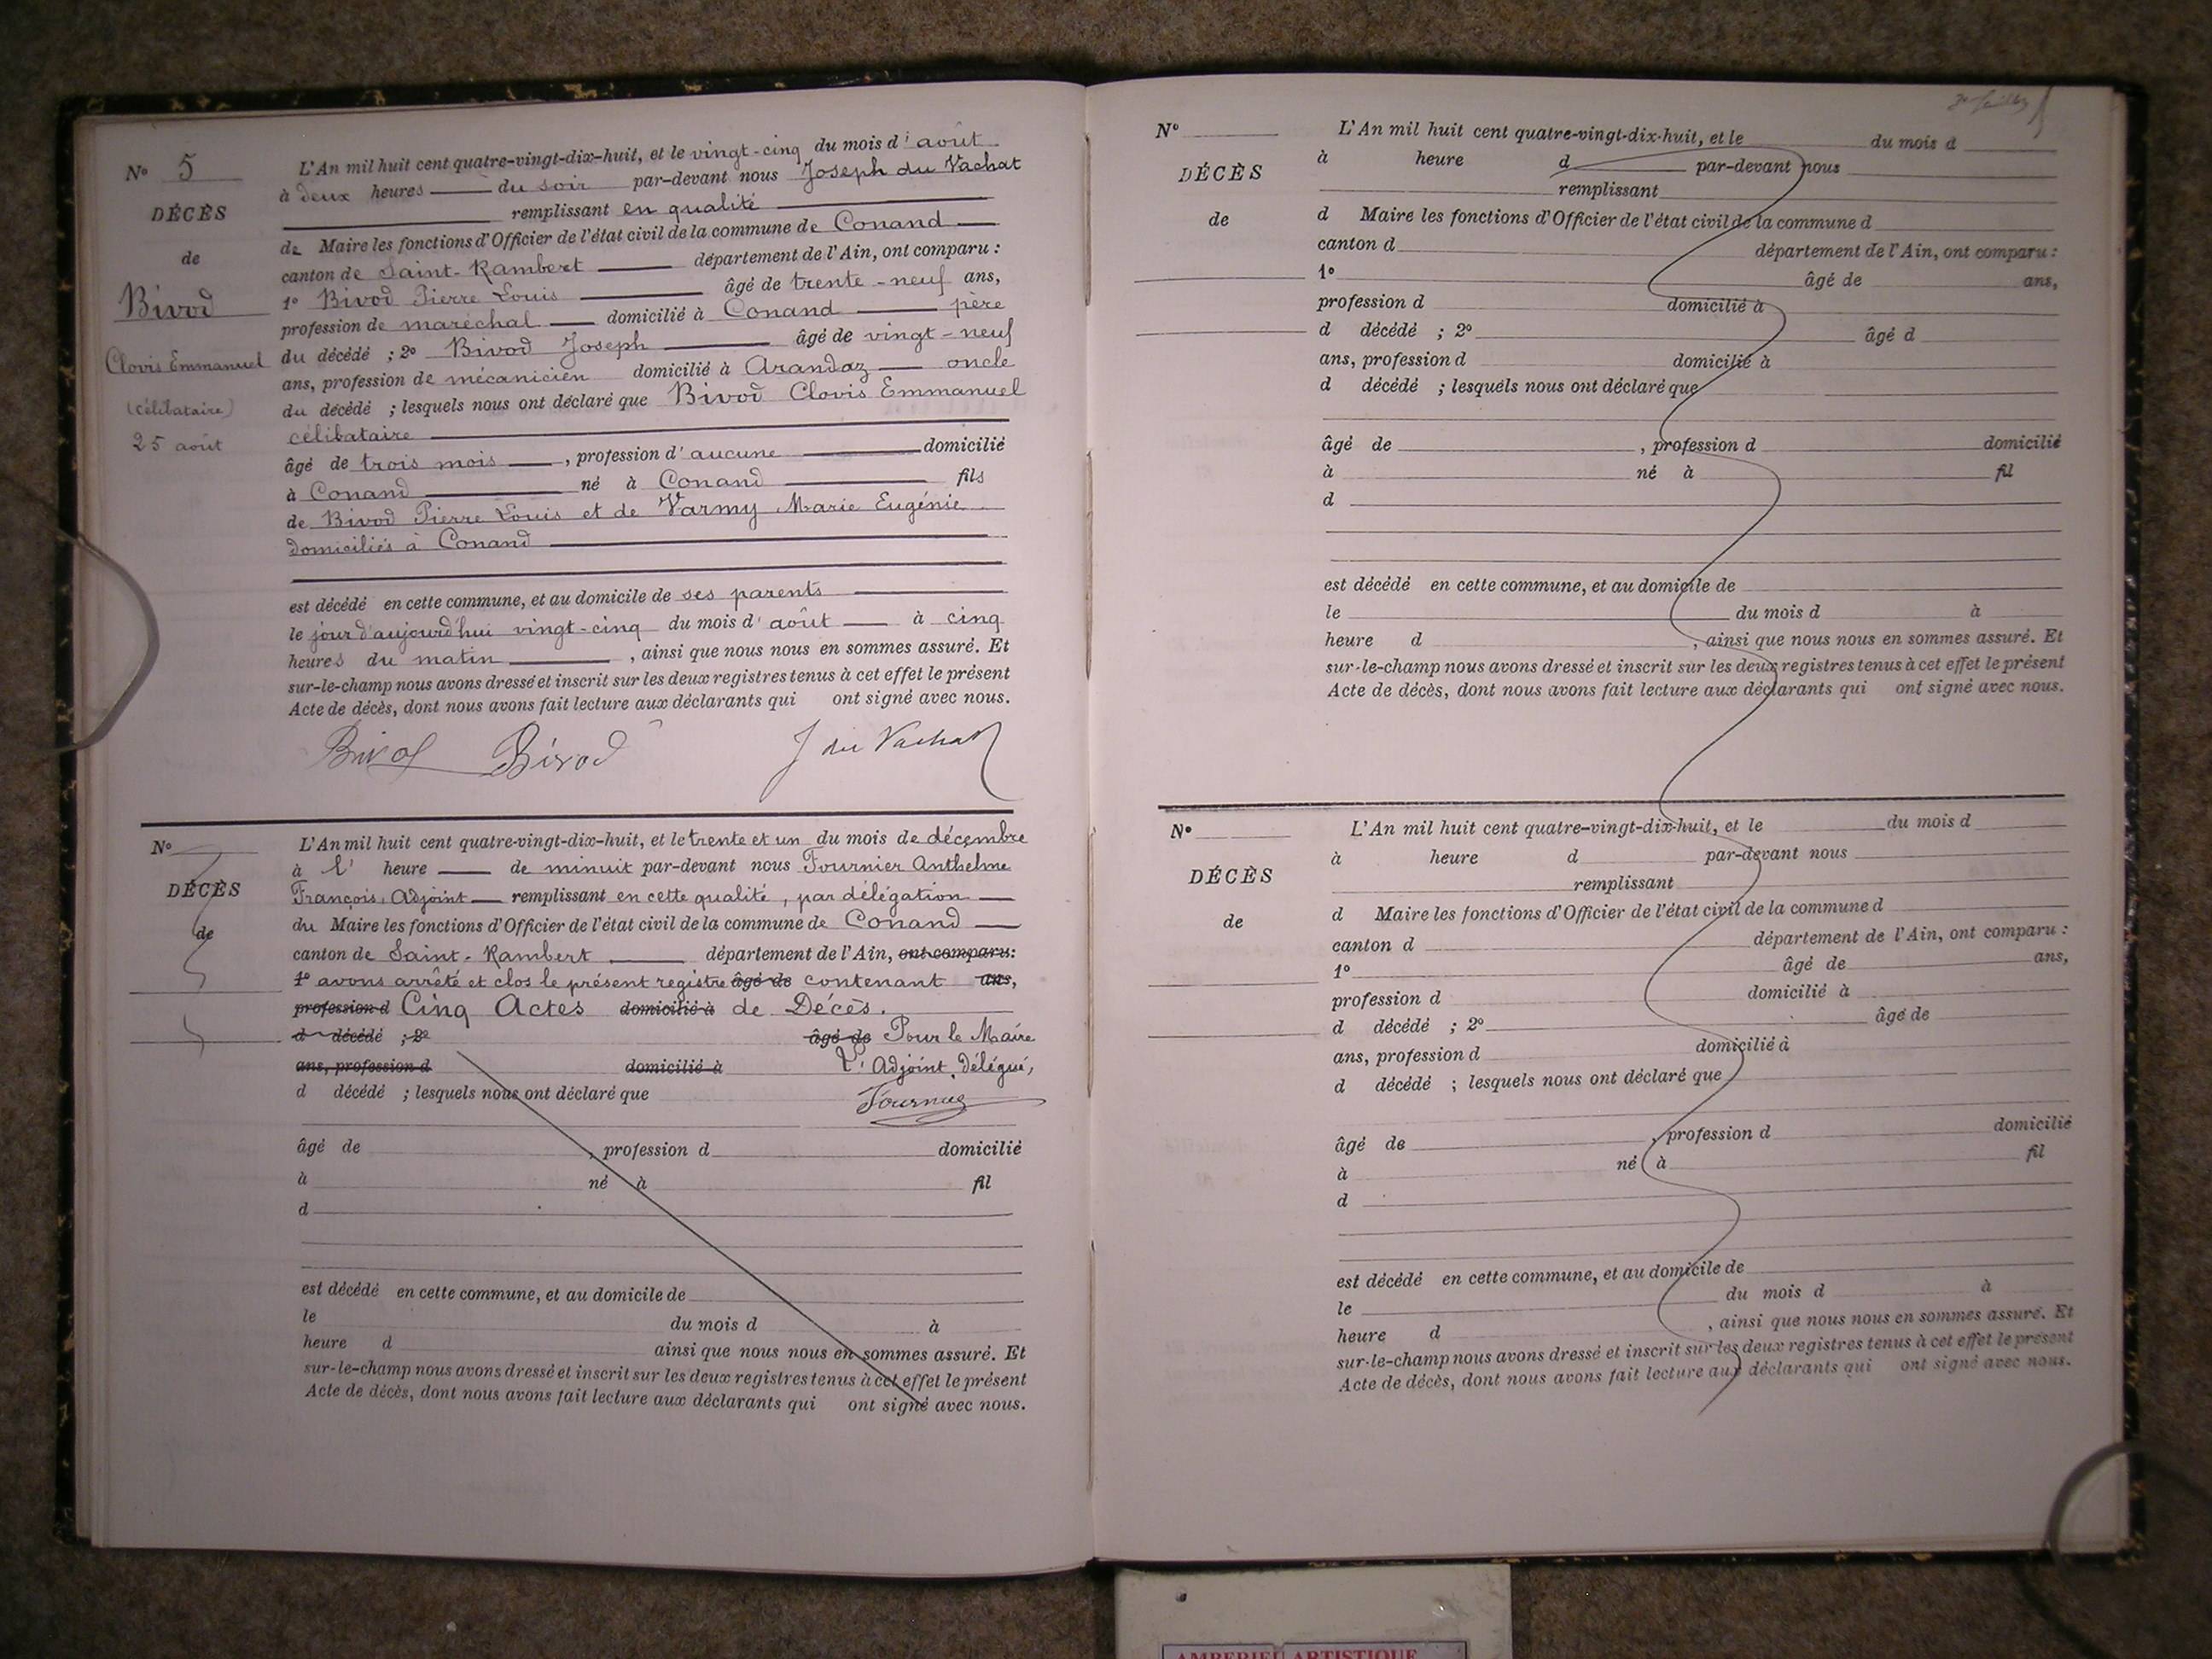 N° 5
DÉCÈS
de
Bivod
Clovis Emmanuel
(célibataire)
25 août
L'An mil huit cent quatre-vingt-dix-huit, et le vingt-cinq du mois d'août
à deux heures du soir par-devant nous Joseph du Vachat
remplissant en qualité
de Maire les fonctions d'Officier de l'état civil de la commune de Conand
canton de Saint-Rambert département de l'Ain, ont comparu :
1° Bivod Pierre Louis âgé de trente-neuf ans,
profession de maréchal domicilié à Conand père
du décédé ; 2° Bivod Joseph âgé de vingt-neuf
ans, profession de mécanicien domicilié à Arandaz oncle
du décédé ; lesquels nous ont déclaré que Bivod Clovis Emmanuel
célibataire
âgé de trois mois , profession d'aucune domicilié
à Conand né à Conand fils
de Bivod Pierre Louis et de Varmy Marie Eugénie
domiciliés à Conand
est décédé en cette commune, et au domicile de ses parents
le jour d'aujourd'hui vingt-cinq du mois d'août à cinq
heures du matin , ainsi que nous nous en sommes assuré. Et
sur-le-champ nous avons dressé et inscrit sur les deux registres tenus à cet effet le présent
Acte de décès, dont nous avons fait lecture aux déclarants qui ont signé avec nous.
Bivod Bivod J du Vachat
N°
DÉCÈS
de
L'An mil huit cent quatre-vingt-dix-huit, et le trente et un du mois de décembre
à l' heure de minuit par-devant nous Fournier Anthelme
François, Adjoint remplissant en cette qualité, par délégation
du Maire les fonctions d'Officier de l'état civil de la commune de Conand
canton de Saint-Rambert département de l'Ain, ont comparu :
1° avons arrêté et clos le présent registre âgé de contenant ans,
profession d Cinq Actes domicilié à de Décès.
d décédé ; 2° âgé de Pour le Maire
ans, profession d domicilié à L'Adjoint, Délégué,
d décédé ; lesquels nous ont déclaré que Fournier
âgé de , profession d domicilié
à né à fil
d
est décédé en cette commune, et au domicile de
le du mois d à
heure d ainsi que nous nous en sommes assuré. Et
sur-le-champ nous avons dressé et inscrit sur les deux registres tenus à cet effet le présent
Acte de décès, dont nous avons fait lecture aux déclarants qui ont signé avec nous.
N°
DÉCÈS
de
L'An mil huit cent quatre-vingt-dix-huit, et le du mois d
à heure d par-devant nous
remplissant
d Maire les fonctions d'Officier de l'état civil de la commune d
canton d département de l'Ain, ont comparu :
1° âgé de ans,
profession d domicilié à
d décédé ; 2° âgé d
ans, profession d domicilié à
d décédé ; lesquels nous ont déclaré que
âgé de , profession d domicilié
à né à fil
d
est décédé en cette commune, et au domicile de
le du mois d à
heure d , ainsi que nous nous en sommes assuré. Et
sur-le-champ nous avons dressé et inscrit sur les deux registres tenus à cet effet le présent
Acte de décès, dont nous avons fait lecture aux déclarants qui ont signé avec nous.
N°
DÉCÈS
de
L'An mil huit cent quatre-vingt-dix-huit, et le du mois d
à heure d par-devant nous
remplissant
d Maire les fonctions d'Officier de l'état civil de la commune d
canton d département de l'Ain, ont comparu :
1° âgé de ans,
profession d domicilié à
d décédé ; 2° âgé de
ans, profession d domicilié à
d décédé ; lesquels nous ont déclaré que
âgé de , profession d domicilié
à né à fil
d
est décédé en cette commune, et au domicile de
le du mois d à
heure d , ainsi que nous nous en sommes assuré. Et
sur-le-champ nous avons dressé et inscrit sur les deux registres tenus à cet effet le présent
Acte de décès, dont nous avons fait lecture aux déclarants qui ont signé avec nous.
AMBERIEU ARTISTIQUE